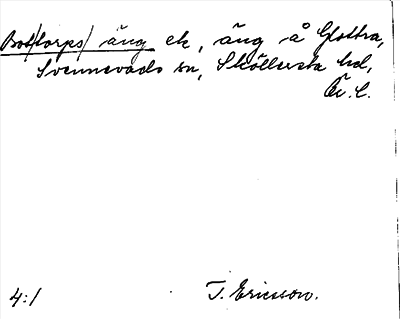 Bot/torps/ äng ek, äng å Glottra,
Svennevads sn, Sköllersta hd,
Ör. l.
4:1 T. Ericsson.